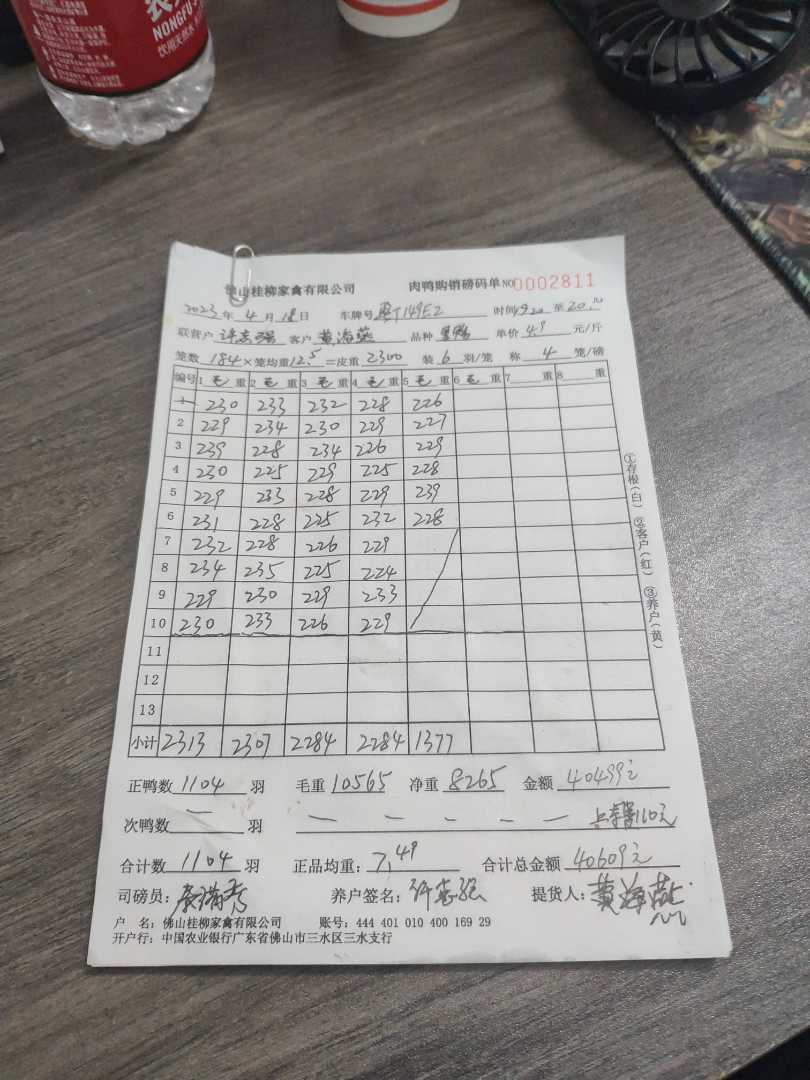 NONGFU
饮用天然水
佛山桂柳家禽有限公司 肉鸭购销磅码单 NO 0002811
2023年 4月 18日 车牌号 149E2 时间 1920 至 20
联营户 许志强 客户 黄海燕 品种 单价 4.9 元/斤
笼数 184 × 笼均重 12.5 = 皮重 2300 装 6 羽/笼 称 4 笼/磅
编号 1 毛 重 2 毛 重 3 毛 重 4 毛 重 5 毛 重 6 毛 重 7 重 8 重
1 230 233 232 228 226
2 229 234 230 229 227
3 239 228 234 226 229
4 230 225 229 225 228
5 229 233 228 229 239
6 231 228 225 232 228
7 232 228 226 229
8 234 235 225 224
9 229 230 229 233
10 230 233 226 229
11
12
13
小计 2313 2307 2284 2284 1377
①存根(白) ②客户(红) ③养户(黄)
正鸭数 1104 羽 毛重 10565 净重 8265 金额 40499元
次鸭数 — 羽 — — — — — 110元
合计数 1104 羽 正品均重: 7.49 合计总金额 40609元
司磅员: 养户签名: 许志强 提货人: 黄海燕
户 名: 佛山桂柳家禽有限公司 账号: 444 401 010 400 169 29
开户行: 中国农业银行广东省佛山市三水区三水支行